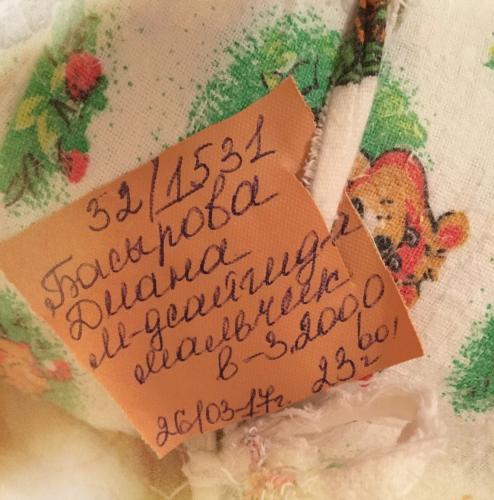 32/1531
Басырова
Диана
М-дсайгидa
мальчик
в-3,2000
26/03-17г. 23 00,